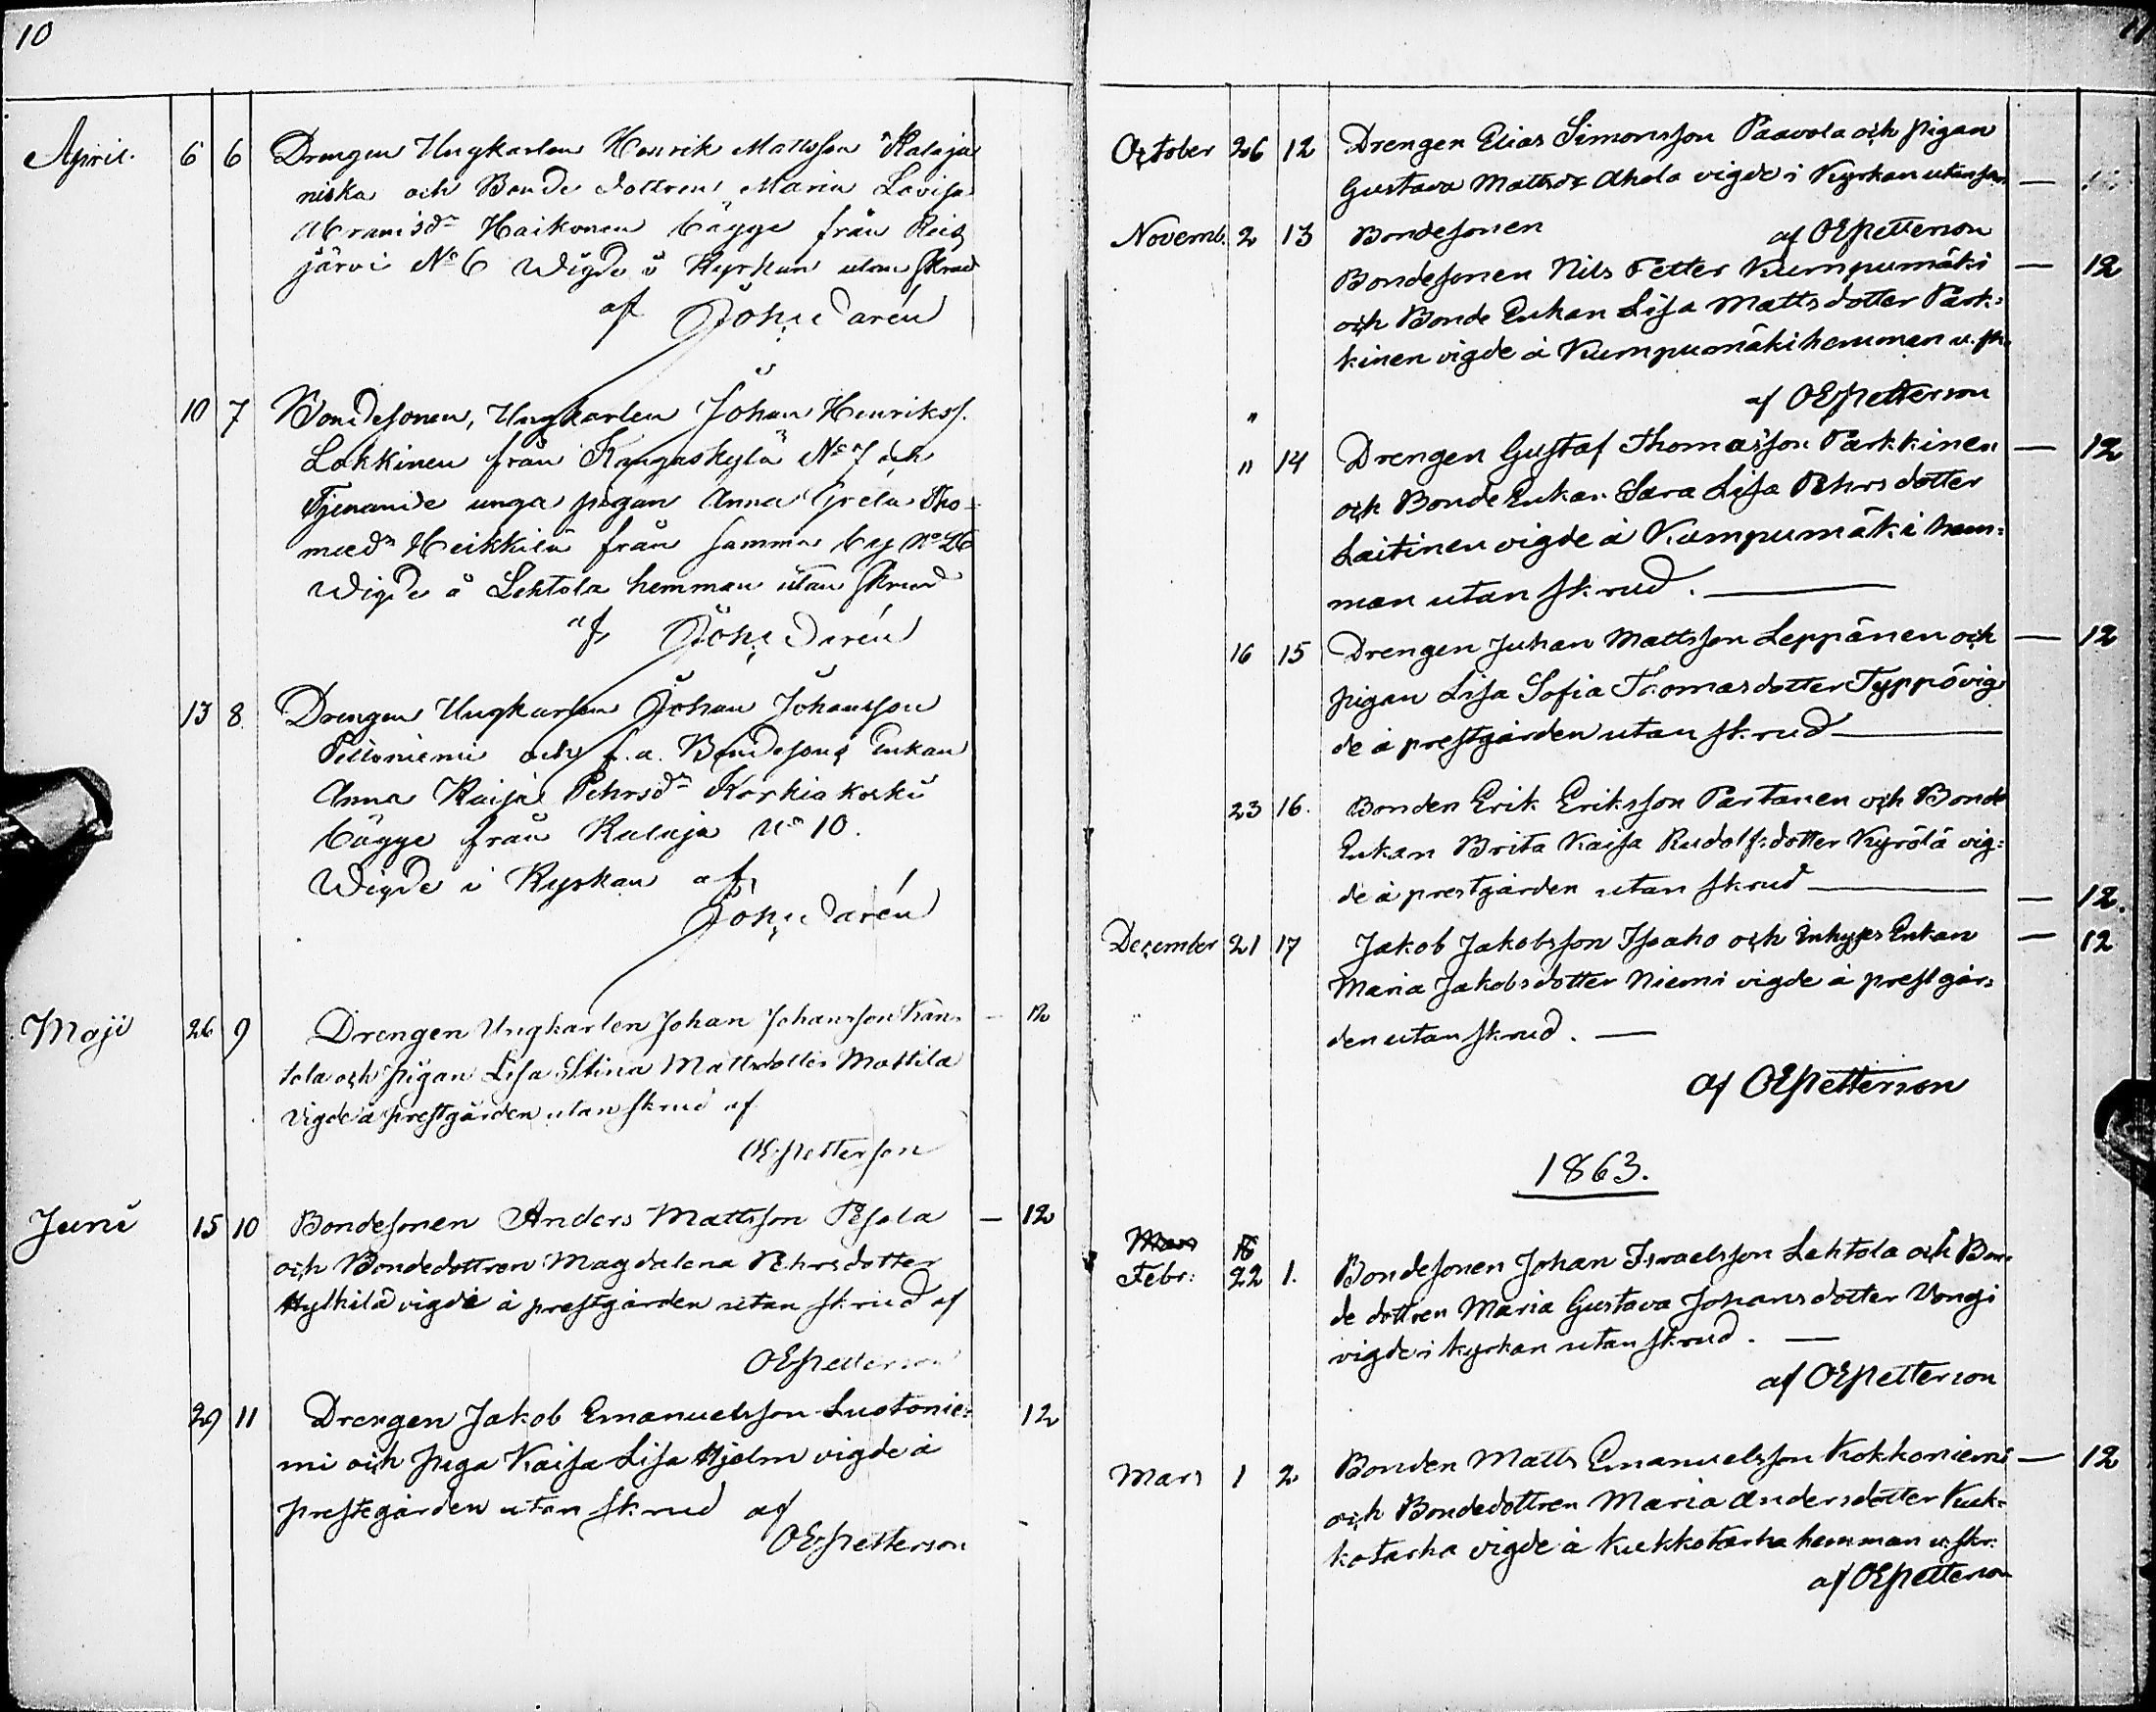 10
April. 6 6 Drengen Ungkarlen Henrik Mattsson Kalaja
niska och Bonde dottren Maria Lovisa
Abramsdr Haikonen bägge från Reis
järvi No 6 Wigde i Kyrkan utan skrud
af Joh: Darén
10 7 Bondesonen, Ungkarlen Johan Henrikss.
Lokkinen från Kangaskylä No 7 och
Tjenande unga pigan Anna Greta Tho-
masdr Heikkilä från samma by No 26
Wigde å Lehtola hemman utan skrud
af Joh: Darén
13 8 Drengen Ungkarlen Johan Johansson
Pilloniemi och f.a. Bondesons Enkan
Anna Kaisa Pehrsdr Korkiakoski
bägge från Kalaja No 10.
Wigde i Kyrkan af
Joh: Darén
Maji 26 9 Drengen Ungkarlen Johan Johansson Kan- — 12
tola och pigan Lisa Stina Mattsdotter Mattila
vigde å prestgården utan skrud af
OEPetterson
Juni 15 10 Bondesonen Anders Mattsson Pesola — 12
och Bondedottren Magdalena Pehrsdotter
Hylkilä vigde å prestgården utan skrud af
OEPetterson
29 11 Drengen Jakob Emanuelsson Luotonie= 12
mi och piga Kaisa Lisa Hjelm vigde å
prestegården utan skrud af
OEPetterson
11
October 26 12 Drengen Elias Simonsson Paavola och pigan
Gustava Mattsdr Ahola vigde i Kyrkan utan —
Novemb. 2 13 Bondesonen af OEPetterson
Bondesonen Nils Petter Kumpumäki — 12
och Bonde Enkan Lisa Mattsdotter Park=
kinen vigde å Kumpumäki hemman u.
" af OEPetterson
" 14 Drengen Gustaf Thomasson Parkkinen — 12
och Bonde Enkan Sara Lisa Pehrsdotter
Laitinen vigde å Kumpumäki hem=
man utan skrud. —
16 15 Drengen Juhan Mattsson Leppänen och — 12
pigan Lisa Sofia Thomasdotter Typpö vig
de å prestgården utan skrud —
23 16. Bonden Erik Eriksson Partanen och Bonde
Enkan Brita Kaisa Rudolfsdotter Kyrölä vig=
de å prestgården utan skrud — — 12.
December 21 17 Jakob Jakobsson Isoaho och Inhyses Enkan — 12
Maria Jakobsdotter Niemi vigde å prestgår=
den utan skrud. —
af OEPetterson
1863.
Mars
Febr: 22 1. Bondesonen Johan Israelsson Lehtola och Bon
de dottren Maria Gustava Johansdotter Vongi
vigde i kyrkan utan skrud. —
af OEPetterson
Mars 1 2 Bonden Matts Emanuelsson Kokkoniemi — 12
och Bondedottren Maria Andersdotter Kuk=
kotarha vigde å Kukkotarha hemman u. skr:
af OEPetterson